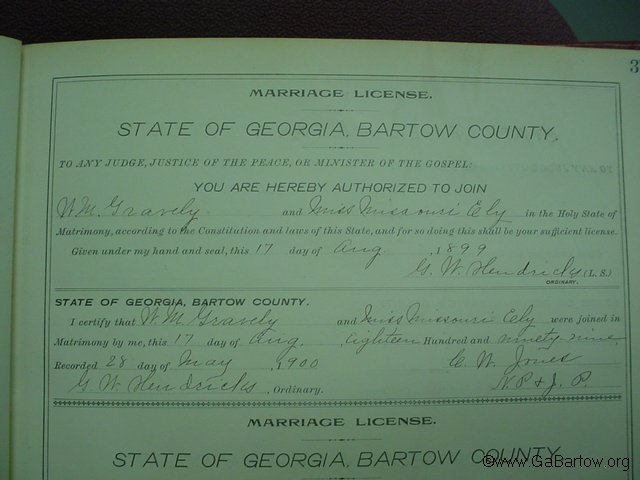 3
MARRIAGE LICENSE.
STATE OF GEORGIA, BARTOW COUNTY,
TO ANY JUDGE, JUSTICE OF THE PEACE, OR MINISTER OF THE GOSPEL:
YOU ARE HEREBY AUTHORIZED TO JOIN
W. M. Gravely and Miss Missouri Ely in the Holy State of
Matrimony, according to the Constitution and laws of this State, and for so doing this shall be your sufficient license.
Given under my hand and seal, this 17 day of Aug , 1899
G. W. Hendricks (L. S.)
ORDINARY.
STATE OF GEORGIA, BARTOW COUNTY.
I certify that W. M. Gravely and Miss Missouri Eely were joined in
Matrimony by me, this 17 day of Aug. , Eighteen Hundred and ninety nine.
Recorded 28 day of May , 1900 C. W. Jones
G W Hendricks , Ordinary. N. P. & J. P.
MARRIAGE LICENSE.
STATE OF GEORGIA, BARTOW COUNTY
©www.GaBartow.org